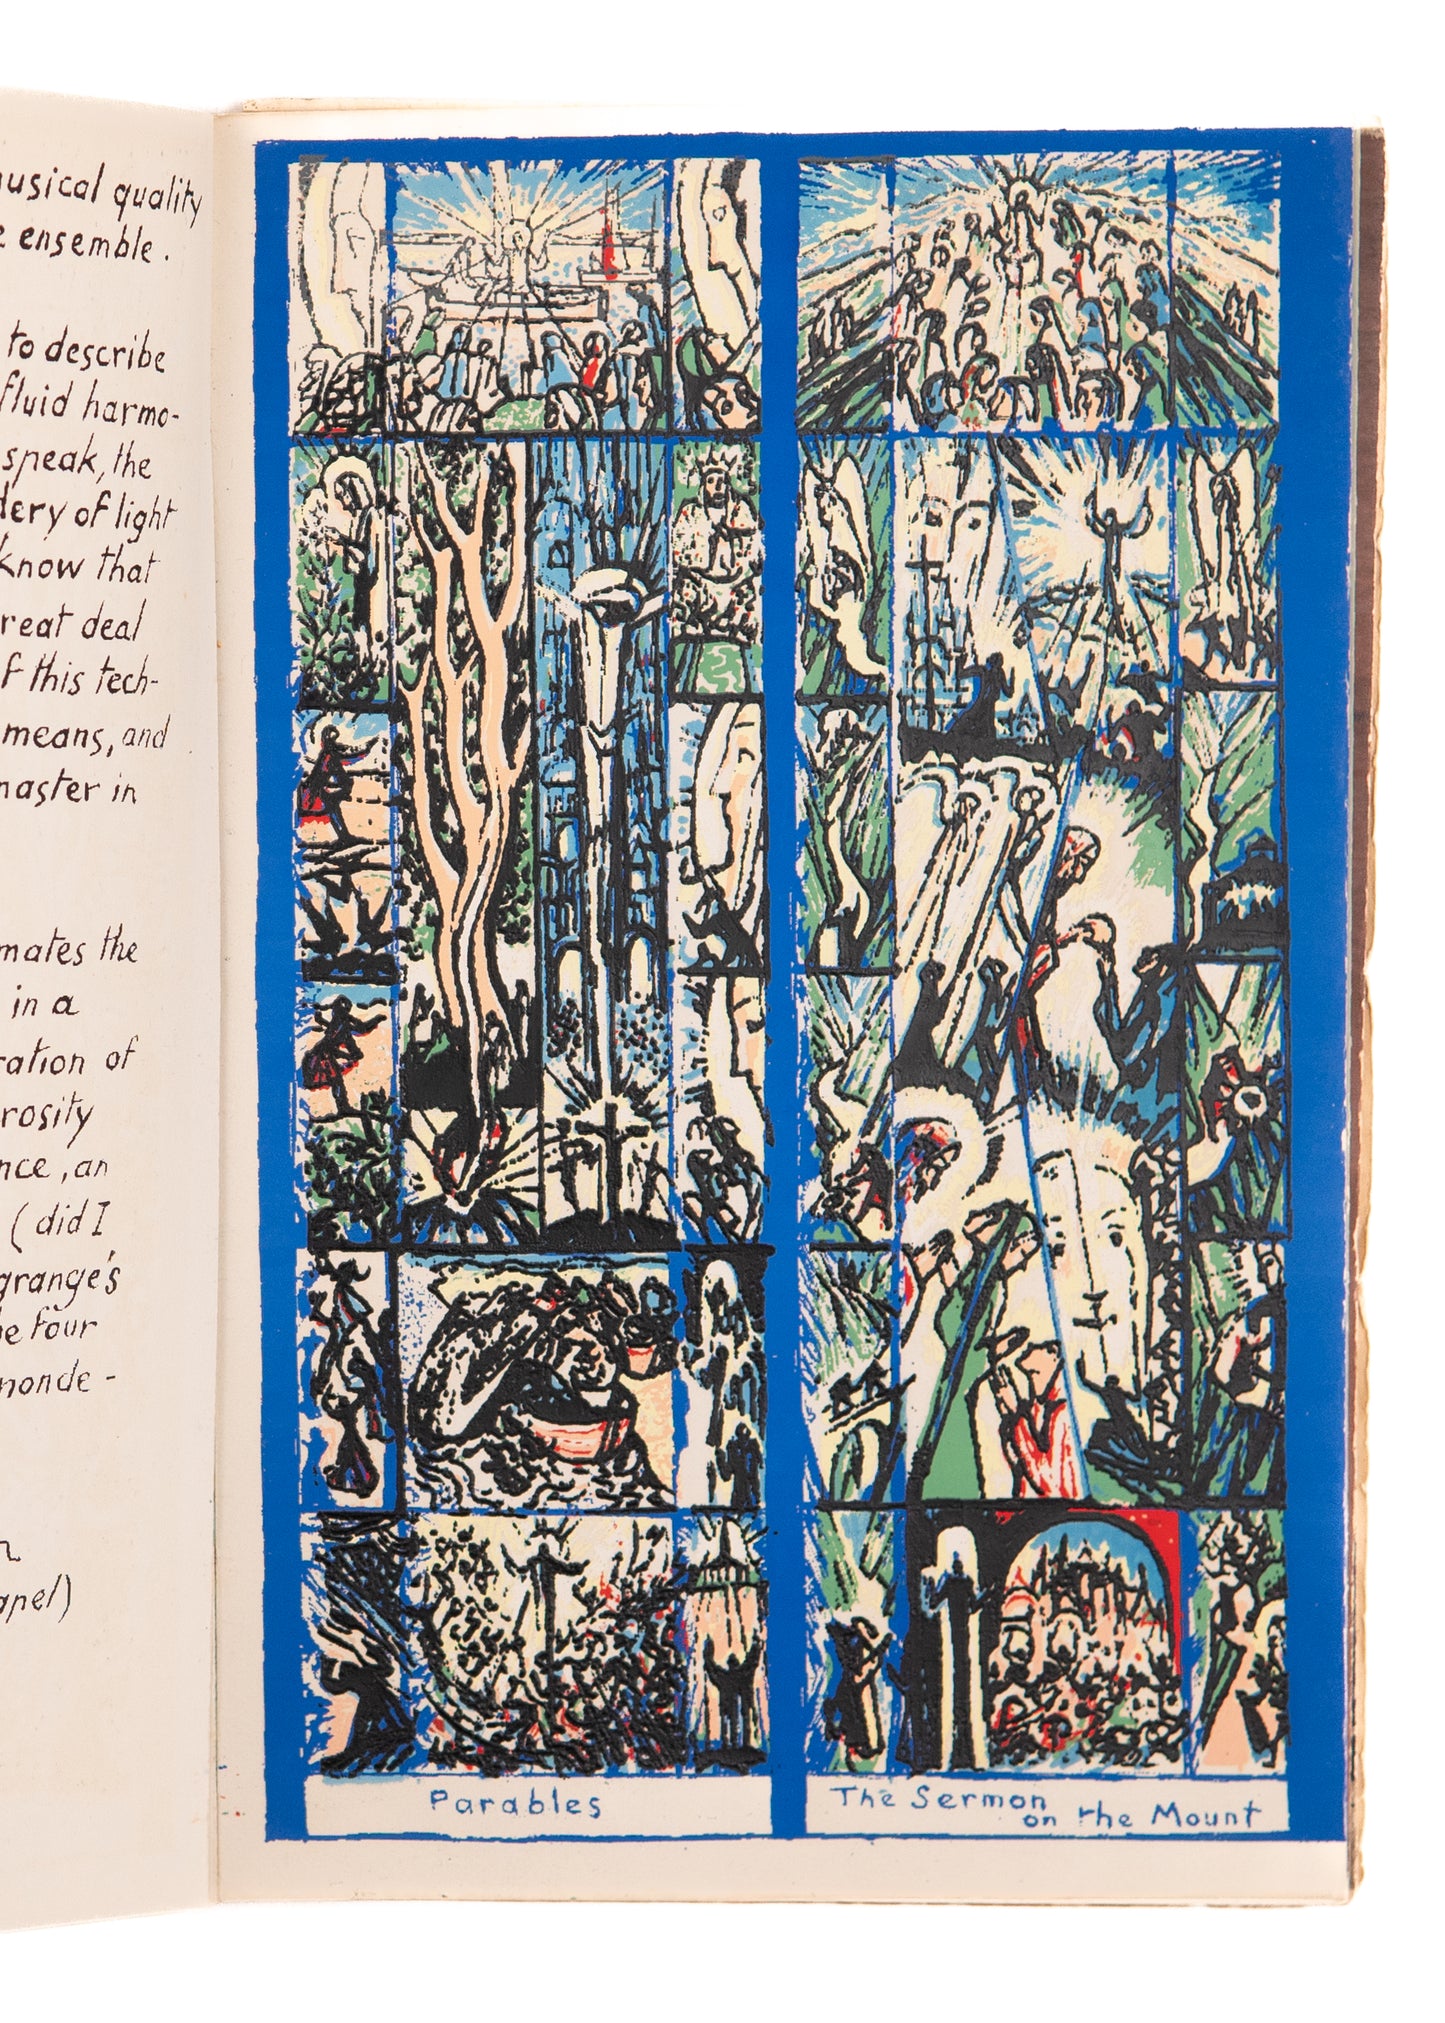 musical quality
ensemble.
to describe
fluid harmo-
speak, the
of light
know that
great deal
of this tech-
means, and
master in
the
in a
of
an
( did I
grange's
four
monde-
Parables
The Sermon
on the Mount